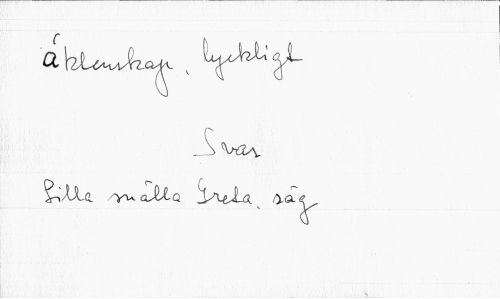 äktenskap, lyckligt
Svar
Lilla snälla Greta, säg